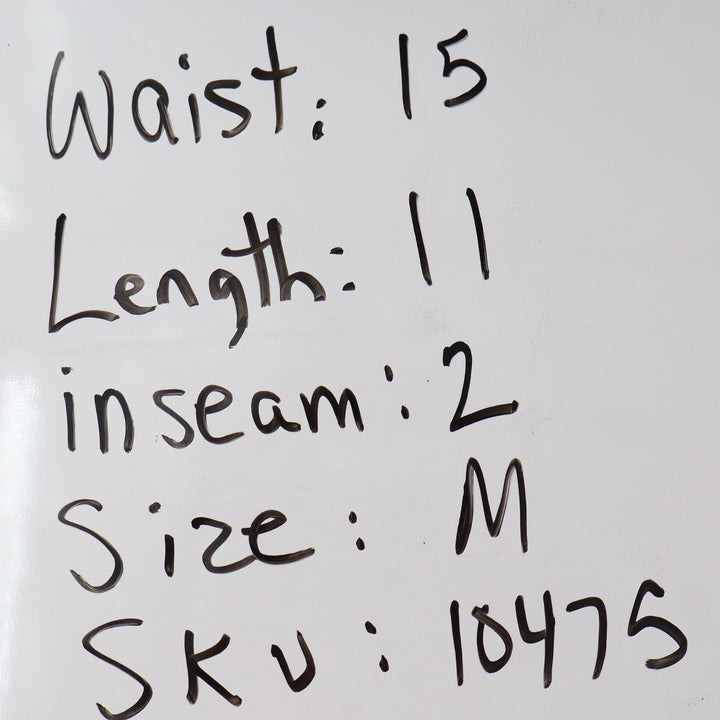 Waist: 15
Length: 11
inseam: 2
Size: M
SKU: 10475